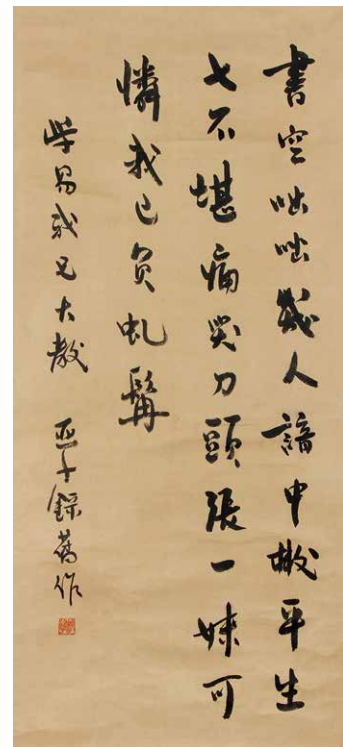 書空咄咄幾人諳中散平生
七不堪痛哭刀頭張一妹可
憐我已負虬髯
學易我兄大教 亞子錄舊作